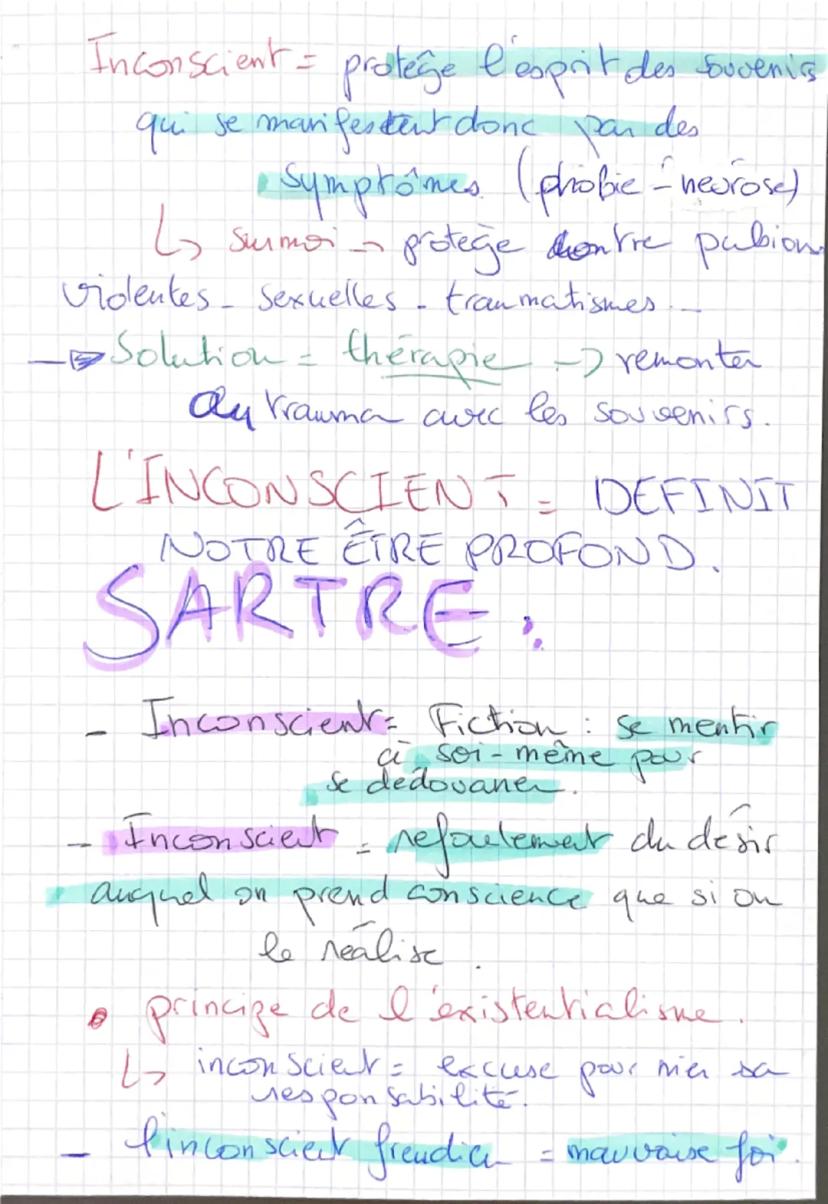 Inconscient = protège l'esprit des souvenirs
qui se manifestent donc par des
symptômes (phobie - névrose)
↳ surmoi → protège contre pulsions
violentes - sexuelles - traumatismes...
→ Solution = thérapie → remonter
au trauma avec les souvenirs.
L'INCONSCIENT = DEFINIT
NOTRE ÊTRE PROFOND.
SARTRE :
- Inconscient = Fiction : se mentir
à soi-même pour
se dédouaner.
- Inconscient = refoulement du désir
auquel on prend conscience que si on
le réalise.
• principe de l'existentialisme.
↳ inconscient = excuse pour nier sa
responsabilité.
- l'inconscient freudien = mauvaise foi.